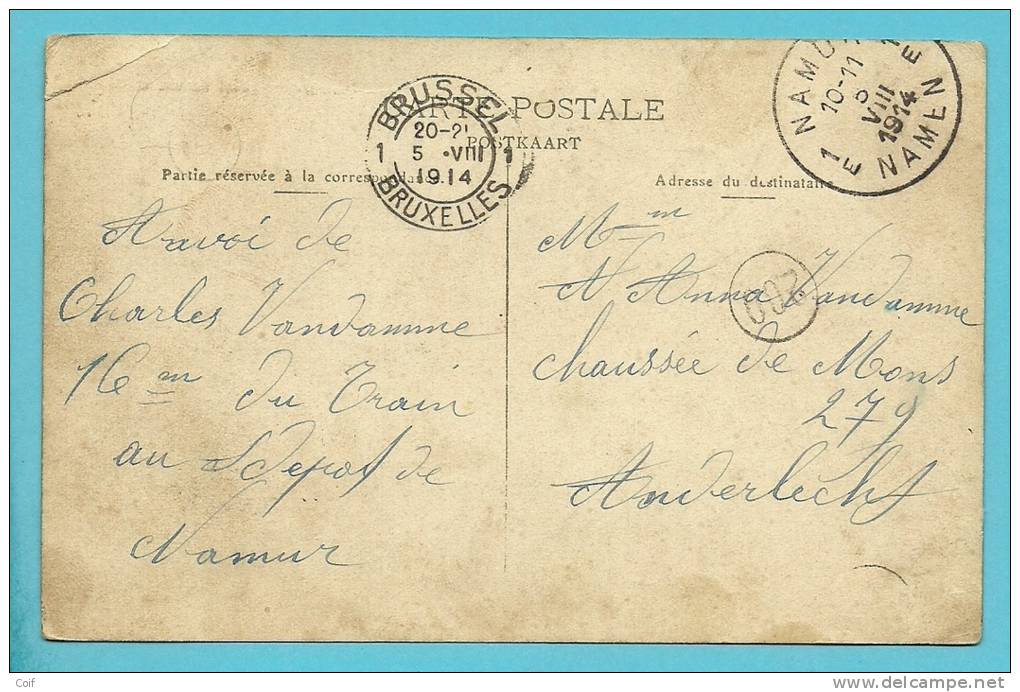 CARTE POSTALE
POSTKAART
Partie réservée à la correspondance
Adresse du destinataire
BRUSSEL
20-21
1 5 VIII 1
1914
BRUXELLES
NAMUR
10-11
VIII
1914
1 E
E 1
NAMEN
de
Charles Vandamme
16 em du Train
au Depot de
Namur
Mm
Anna Vandamme
chaussée de Mons
279
Anderlecht
Coif
www.delcampe.net